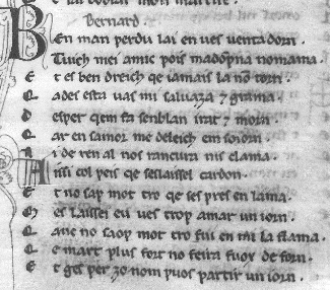 Bernard.
BEn man perdu lai en ues uentadorn.
Tuich mei amic pois madõpna nomama.
E t es ben dreich qe iamais la nõ torn.
Q ades esta uas mi saluaza ⁊ grama.
D esper qem fa senblan irat ⁊ morn.
Q ar en samor me deleich em soiorn.
N i de ren al nos rancura nis clama.
A issi col peis qe sessaissel cardon.
E t no sap mot tro qe ses pres en lama.
M es laissei eu ues trop amar un iorn.
Q anc no saop mot tro fui en mi la flama.
Q e mart plus fort no feira fuox de forn.
E t ges per zo nom puos partir un iorn.